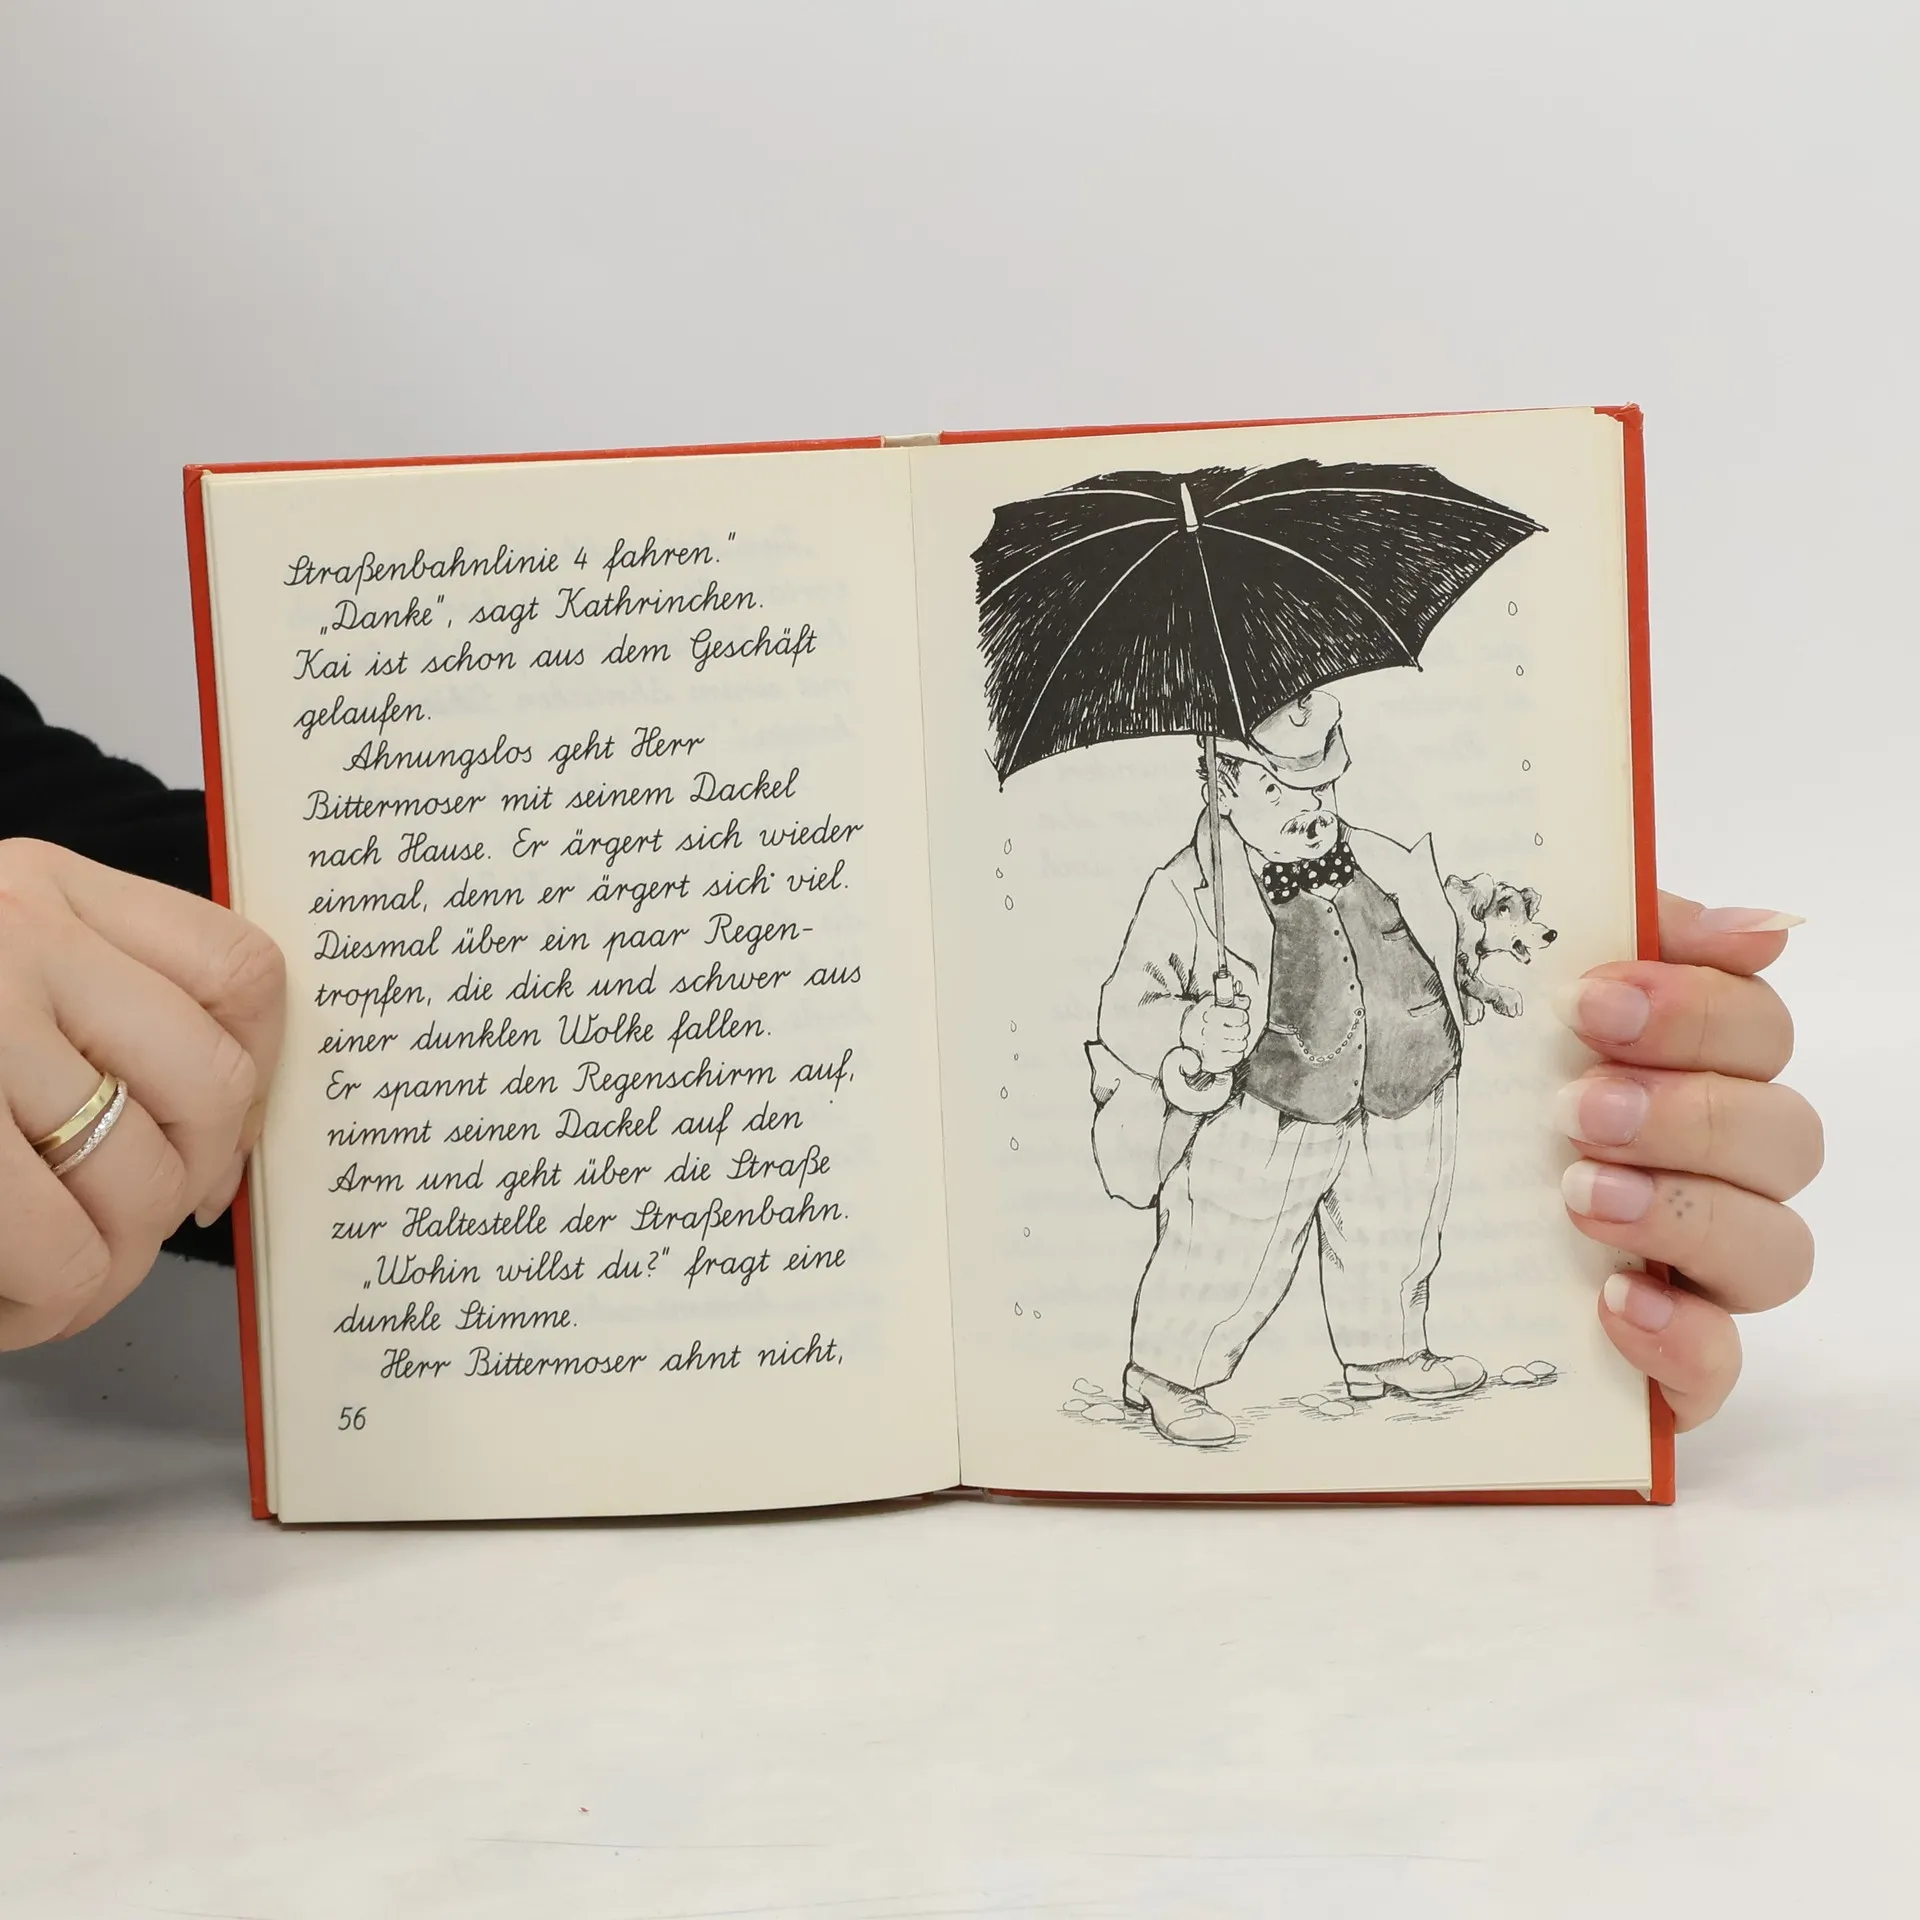 Straßenbahnlinie 4 fahren."
„Danke", sagt Kathrinchen.
Kai ist schon aus dem Geschäft
gelaufen.
Ahnungslos geht Herr
Bittermoser mit seinem Dackel
nach Hause. Er ärgert sich wieder
einmal, denn er ärgert sich viel.
Diesmal über ein paar Regen-
tropfen, die dick und schwer aus
einer dunklen Wolke fallen.
Er spannt den Regenschirm auf,
nimmt seinen Dackel auf den
Arm und geht über die Straße
zur Haltestelle der Straßenbahn.
„Wohin willst du?" fragt eine
dunkle Stimme.
Herr Bittermoser ahnt nicht,
56